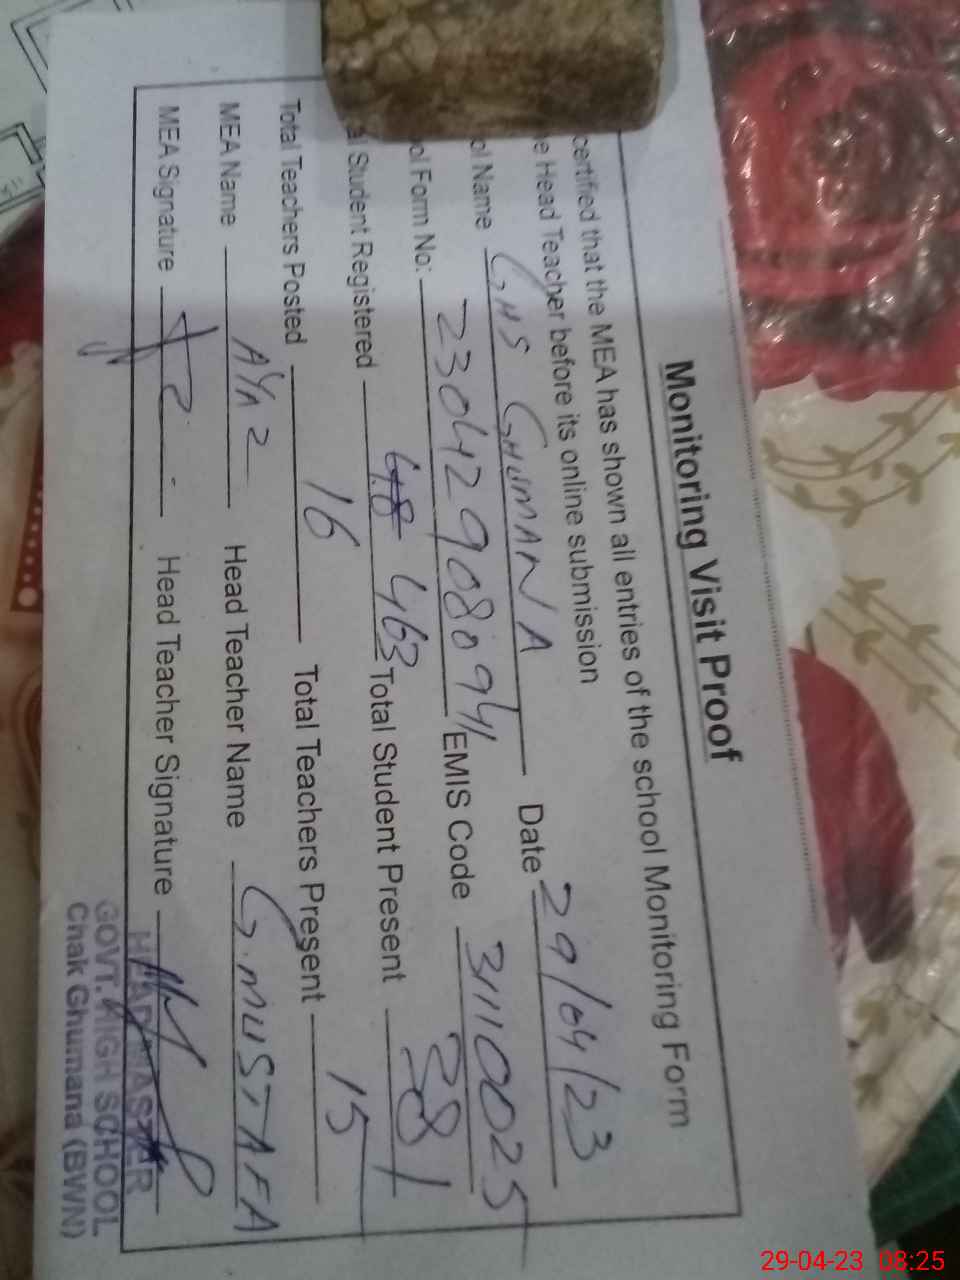 Monitoring Visit Proof
certified that the MEA has shown all entries of the school Monitoring Form
e Head Teacher before its online submission
ol Name GHS GHUMANA Date 29/04/23
ol Form No: 230429080941 EMIS Code 31110025
al Student Registered 48 463 Total Student Present 381
Total Teachers Posted 16 Total Teachers Present 15
MEA Name AYAZ Head Teacher Name G.MUSTAFA
MEA Signature Head Teacher Signature
HEADMASTER
GOVT. HIGH SCHOOL
Chak Ghumana (BWN)
29-04-23 08:25